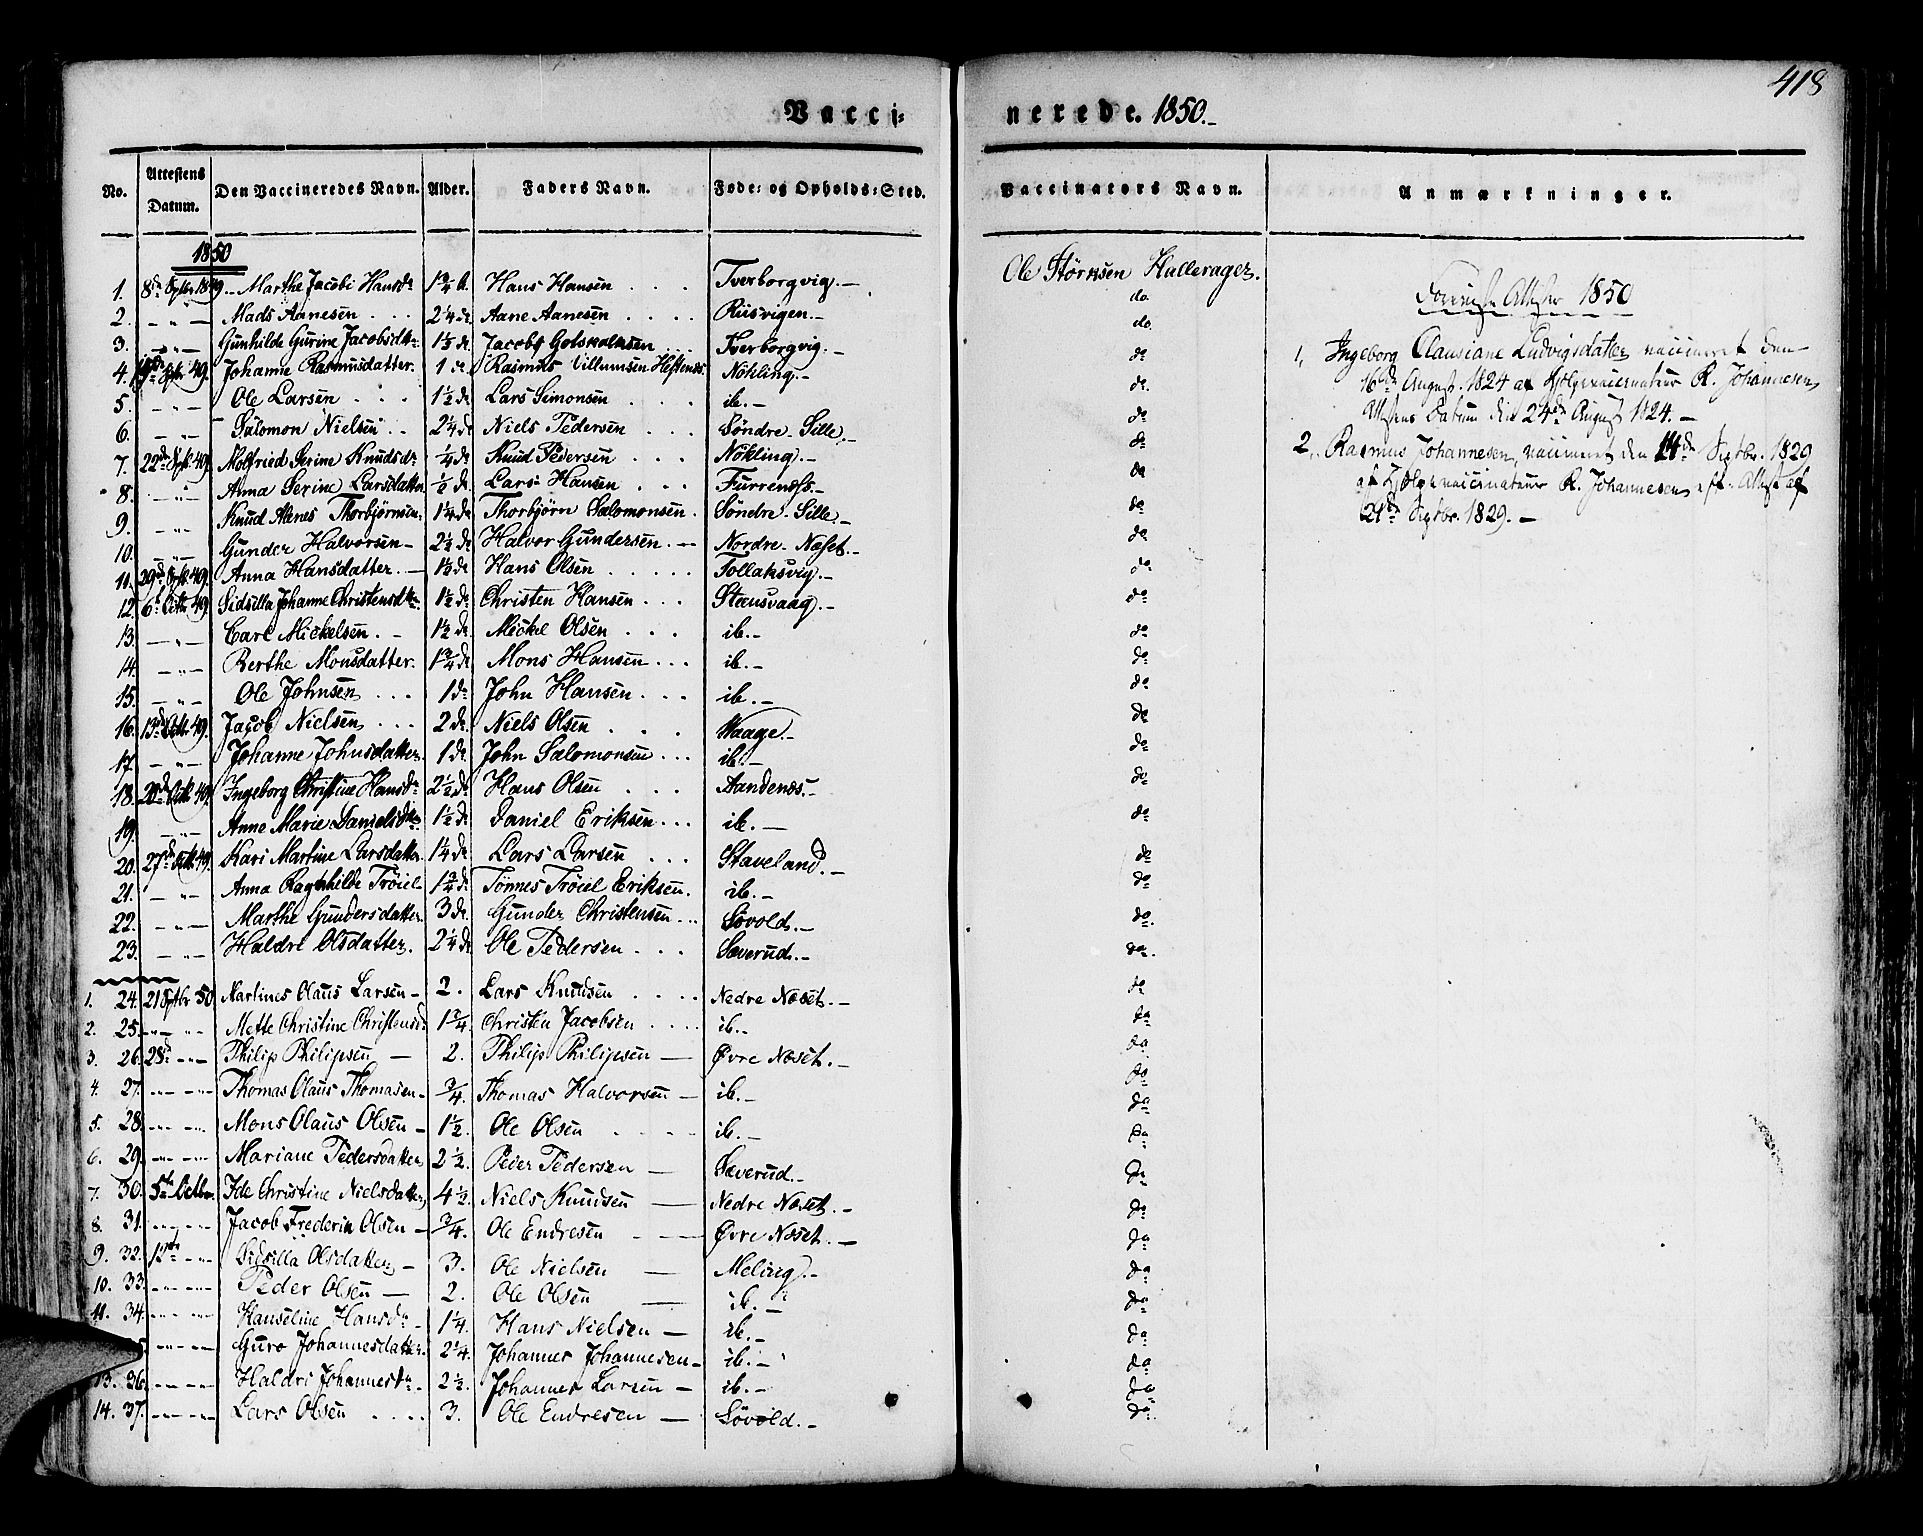 418
Vacci= nerede. 1850.-
No. Attestens Datum. Den Vaccineredes Navn. Alder. Faders Navn. Føde= og Opholds=Sted. Vaccinators Navn. Anmærkninger.
1850
1. 8de Septbr 1849.- Marthe Jacobi Hansdr 1¾ A. Hans Hansen Tverborgvig.- Ole Störksen Hulleragez.
2. - " - Mads Aanesen 2¼ do Aane Aanesen Ruisvigen.- do.
3. - " - Gunhilde Gurine Jacobsdtr. 1½ do Jacob Gotskalksen Tverborgvig.- do.
4. Septr 49. Johanne Rasmusdatter. 1 do Rasmus Villumsen Nöhling.- do
5. - " - Ole Larsen 1½ do Lars Simonsen ib.- do.
6. - " - Salomon Nielsen 2¼ do Niels Pedersen Söndre-Sille.- do
7. 22de Septr. 49. Molfried Serine Knudsdr ¼ do Knud Pedersen Nökling.- do
8. - " - Anna Serine Larsdatter ½ do Lars Hansen do
9. - " - Knud Thorbjörnsen 1¼ do Thorbjörn Salomonsen Söndre-Sille.- do
10. - " - Gunder Halvorsen- 2½ do Halvor Gundersen.- Nordre-Næset.- do
11. 29de Septr. 49. Anna Hansdatter.- 1½ do Hans Olsen Tollaksvig.- do
12. 6te Octbr 49. Sidsilla Johanne Christensdtr. 1½ do Christen Hansen Stensvaag.- do
13. - " - Carl Mickelsen.- 1½ do Mickel Olsen ib.- do
14. - " - Berthe Monsdatter. 1¾ do Mons Hansen ib.- do
15. - " - Ole Johnsen 1 do John Hansen ib.- do
16. 13de Octbr. 49. Jacob Nielsen 2 do Niels Olsen Waage.- do
17. - " - Johanne Johnsdatter. 1 do John Salomonsen ib.- do
18. 20de Octbr 49. Ingeborg Christine Hansdr 2½ do Hans Olsen Aandenæs.- do
19. - " - Anne Marie Danielsdtr. 1½ do Daniel Eriksen ib.- do
20. 27de Octbr. 49. Kari Martine Larsdatter. 1¼ do Lars Larsen Staveland.- do
21. - " - Anna Ragnhilde Tröiel 1¾ do Tönnes Tröiel Eriksen. ib.- do
22. - " - Marthe Gundersdatter. 3 do Gunder Christensen Sövold.- do.
23. - " - Haldri Olsdatter. 2¼ do Ole Pedersen Sæverud.- do.
1. 24. 21 Septbr 50 Martines Olaus Larsen- 2. Lars Knudsen Nedre Næset.- do
2. 25. - " - " - Mette Christine Christensdr 1¾. Christen Jacobsen ib.- do
3. 26. 28de - " - Philip Philipsen - 2. Philip Philipsen - Øvre Næset.- do
4. 27. - " - " - Thomas Olaus Thomasen- ¾. Thomas Halvorsen - ib.- do
5. 28. - " - " - Mons Olaus Olsen- 1½. Ole Olsen ib.- do
6. 29. - " - " - Mariane Pedersdatter 2½. Peder Pedersen - Sæverud.- do
7. 30. 5te Octbr. Ide Christine Nielsdatter 4½. Niels Knudsen - Nedre Næset.- do
8. 31. - " - " - Jacob Frederik Olsen- ¾. Ole Endresen - Øvre Næset.- do
9. 32. 12te - " - Sidsilla Olsdatter- 3. Ole Nielsen - Meling.- do
10. 33. - " - " - Peder Olsen - 2. Ole Olsen - ib.- do
11. 34. - " - " - Hanseline Hansdr- 1¼. Hans Nielsen - ib.- do
- " - " - Guro Johannesdatter. 2¼. Johannes Johannesen- ib.- do
13. 36. - " - " - Haldri Johannesdr. 2½. Johannes Larsen - ib.- do
14. 37. - " - " - Lars Olsen 3. Ole Endresen - Sövold.- do.
Attester 1850
1, Ingeborg Clausiane Ludvigsdatter vaccineret den-
16de August. 1824 af Hjelpevaccinateur R. Johannesen,
Attestens Datum den 24de August 1824.-
2, Rasmus Johannesen, vaccineret den 14de Septbr. 1829
af Hjelpevaccinateur R. Johannesen, eft. Attest af
21de Septbr. 1829.-